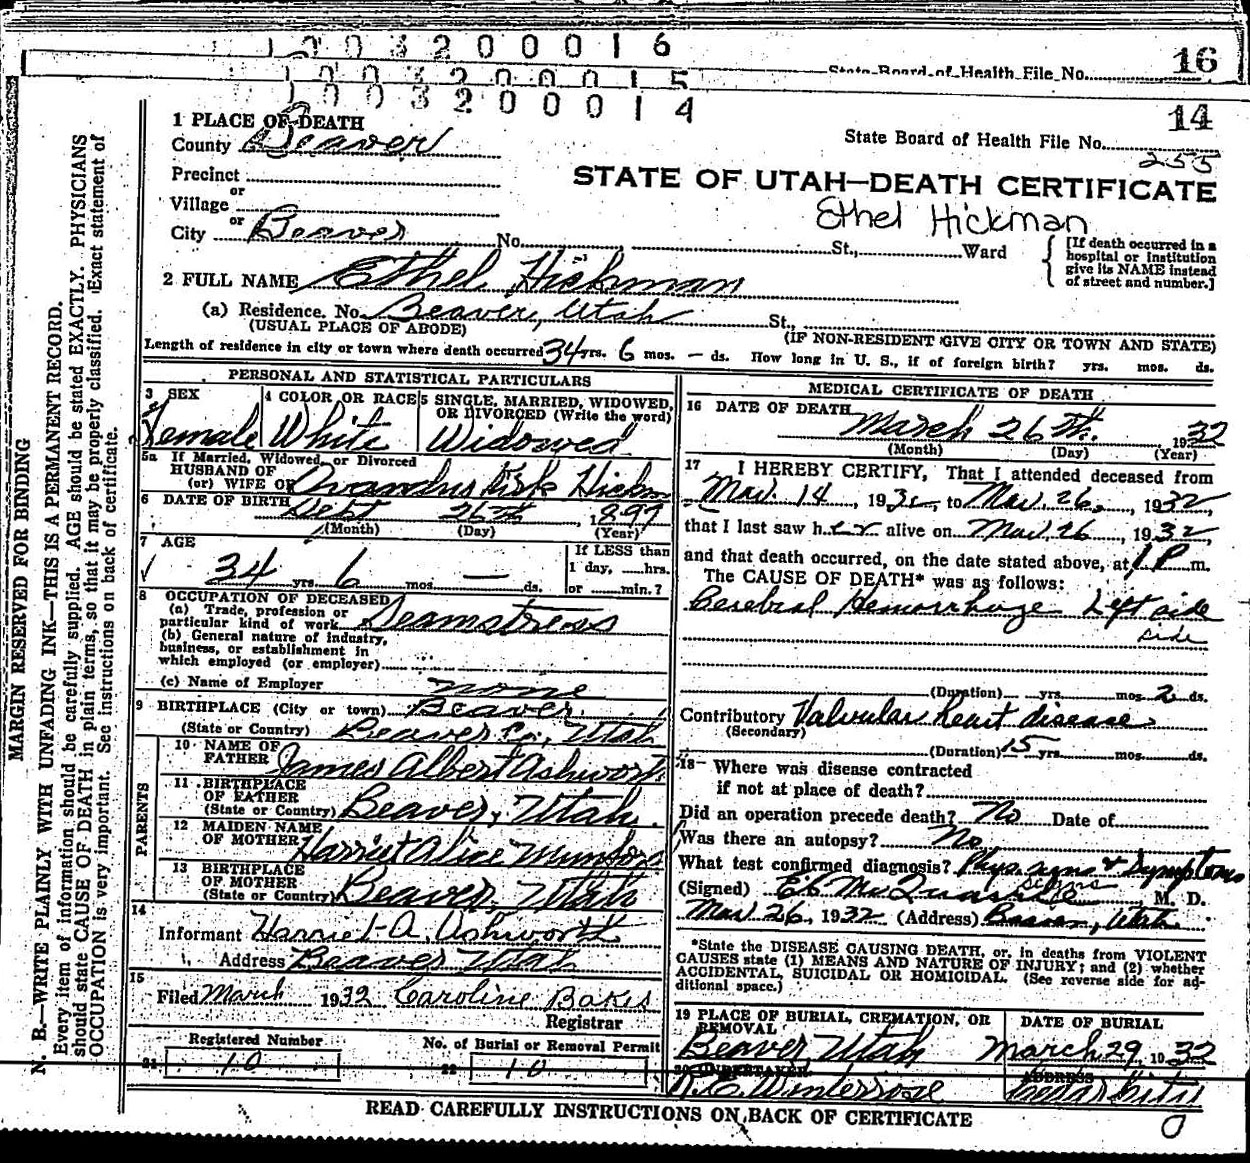 1 0 0 3 2 0 0 0 1 6
State Board of Health File No. 16
1 0 0 3 2 0 0 0 1 5
1 0 0 3 2 0 0 0 1 4
14
State Board of Health File No.
255
1 PLACE OF DEATH
County Beaver
Precinct
or
Village
or
City Beaver No. St., Ward
STATE OF UTAH—DEATH CERTIFICATE
Ethel Hickman
[If death occurred in a
hospital or institution
give its NAME instead
of street and number.]
2 FULL NAME Ethel Hickman
(a) Residence. No. Beaver, Utah St.,
(USUAL PLACE OF ABODE) (IF NON-RESIDENT GIVE CITY OR TOWN AND STATE)
Length of residence in city or town where death occurred 34 yrs. 6 mos. – ds. How long in U. S., if of foreign birth? yrs. mos. ds.
PERSONAL AND STATISTICAL PARTICULARS
3 SEX
Female
4 COLOR OR RACE
White
5 SINGLE, MARRIED, WIDOWED,
OR DIVORCED (Write the word)
Widowed
5a If Married, Widowed, or Divorced
HUSBAND OF
(or) WIFE OF Kirk Hickm
6 DATE OF BIRTH Sept 26th, 1897
(Month) (Day) (Year)
7 AGE
34 yrs. 6 mos. — ds.
If LESS than
1 day, hrs.
or min.?
8 OCCUPATION OF DECEASED
(a) Trade, profession or
particular kind of work Seamstress
(b) General nature of industry,
business, or establishment in
which employed (or employer)
(c) Name of Employer none
9 BIRTHPLACE (City or town) Beaver
(State or Country) Beaver Co., Utah
PARENTS
10 NAME OF
FATHER James Albert Ashworth
11 BIRTHPLACE
OF FATHER
(State or Country) Beaver, Utah.
12 MAIDEN NAME
OF MOTHER Harriet Alice
13 BIRTHPLACE
OF MOTHER
(State or Country) Beaver, Utah
14
Informant Harriet A. Ashworth
Address Beaver Utah
15
Filed March 1932 Caroline Bakes
Registrar
Registered Number
21 10
No. of Burial or Removal Permit
22 10
MEDICAL CERTIFICATE OF DEATH
16 DATE OF DEATH March 26th. 1932
(Month) (Day) (Year)
17 I HEREBY CERTIFY, That I attended deceased from
Mar. 14, 1932, to Mar. 26, 1932,
that I last saw her alive on Mar 26, 1932,
and that death occurred, on the date stated above, at 1 P m.
The CAUSE OF DEATH* was as follows:
Cerebral Hemorrhage Left side
side
(Duration) yrs. mos. 2 ds.
Contributory Valvular heart disease
(Secondary)
(Duration) 15 yrs. mos. ds.
18 Where was disease contracted
if not at place of death?
Did an operation precede death? No Date of
Was there an autopsy? No
What test confirmed diagnosis? Phys. signs + Symptoms
signs
(Signed) M. D.
Mar 26, 1932 (Address) Beaver, Utah
*State the DISEASE CAUSING DEATH, or, in deaths from VIOLENT
CAUSES state (1) MEANS AND NATURE OF INJURY; and (2) whether
ACCIDENTAL, SUICIDAL OR HOMICIDAL. (See reverse side for ad-
ditional space.)
19 PLACE OF BURIAL, CREMATION, OR
REMOVAL
Beaver, Utah
DATE OF BURIAL
March 29, 1932
20 UNDERTAKER
R. E. Winterrose
ADDRESS
Cedar City
READ CAREFULLY INSTRUCTIONS ON BACK OF CERTIFICATE
MARGIN RESERVED FOR BINDING
N. B.—WRITE PLAINLY WITH UNFADING INK—THIS IS A PERMANENT RECORD.
Every item of information should be carefully supplied. AGE should be stated EXACTLY. PHYSICIANS
should state CAUSE OF DEATH in plain terms, so that it may be properly classified. Exact statement of
OCCUPATION is very important. See instructions on back of certificate.